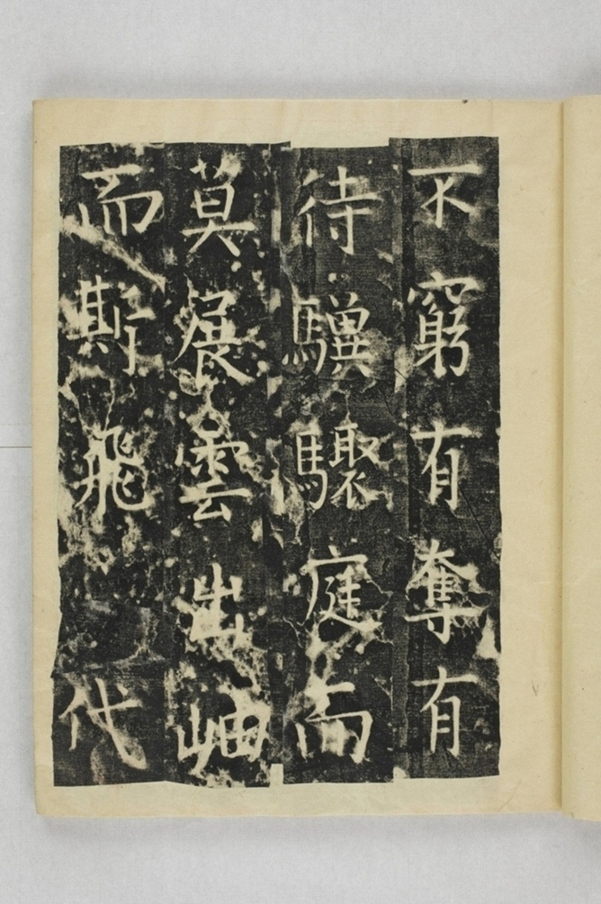 不窮有奪有
待驥驟庭而
莫展雲出岫
而斯飛代